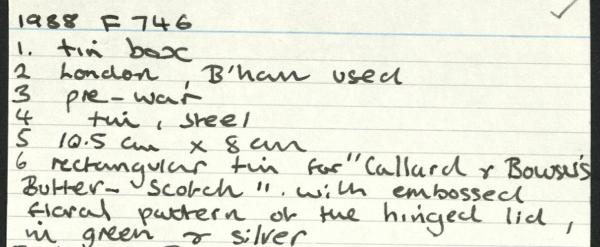 1988 F 746
1. tin box
2 London, B'ham used
3 pre-war
4 tin, steel
5 10.5 cm x 8 cm
6 rectangular tin for "Callard & Bowser's
Butter-Scotch". with embossed
floral pattern of the hinged lid,
in green & silver